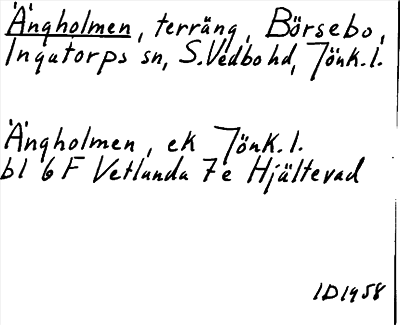 Ängholmen, terräng, Börsebo,
Ingatorps sn, S. Vedbo hd, Jönk. l.
Ängholmen, ek Jönk. l.
bl 6 F Vetlanda 7e Hjältevad
ID1958